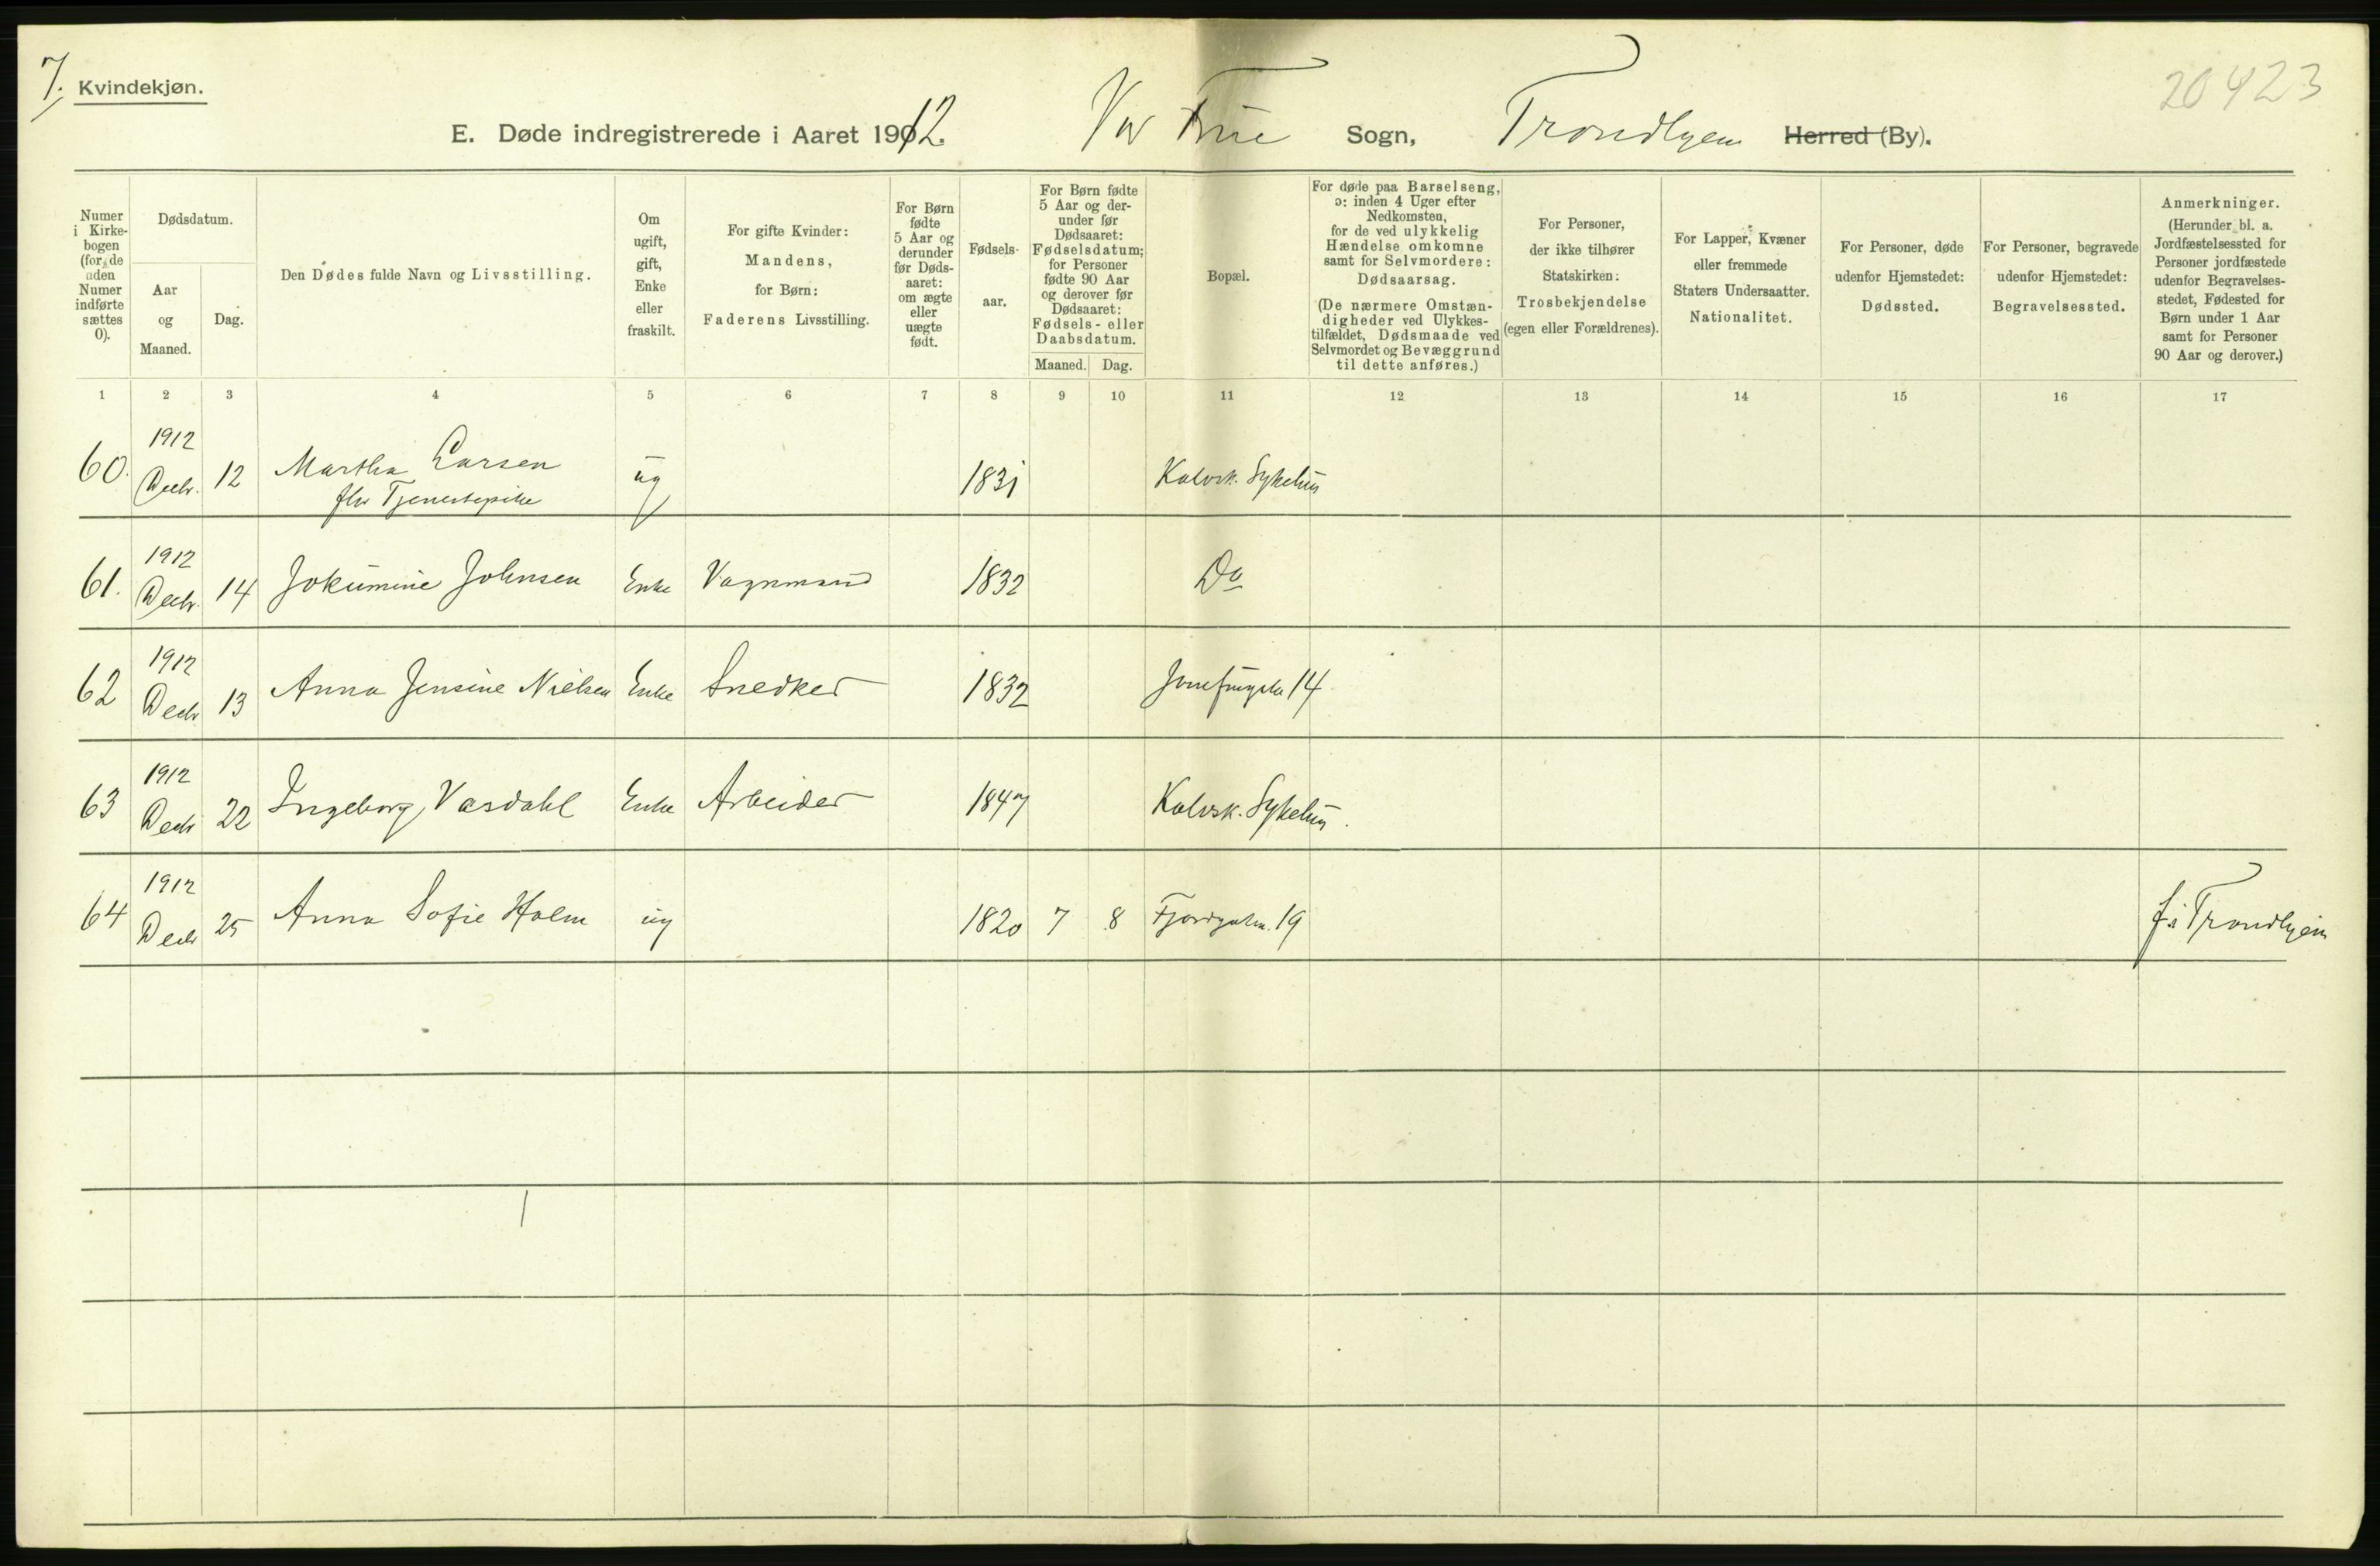 7. Kvindekjøn.
20423
E. Døde indregistrerede i Aaret 1912. Vor Frue Sogn, Trondhjem Herred (By).
Numer i Kirkebogen (for de uden Numer indførte sættes 0).
Dødsdatum.
Aar og Maaned.
Dag.
Den Dødes fulde Navn og Livsstilling.
Om ugift, gift, Enke eller fraskilt.
For gifte Kvinder: Mandens, for Børn: Faderens Livsstilling.
For Børn fødte 5 Aar og derunder før Dødsaaret: om ægte eller uægte født.
Fødselsaar.
For Børn fødte 5 Aar og derunder før Dødsaaret: Fødselsdatum; for Personer fødte 90 Aar og derover før Dødsaaret: Fødsels- eller Daabsdatum.
Maaned. Dag.
Bopæl.
For døde paa Barselseng, ɔ: inden 4 Uger efter Nedkomsten, for de ved ulykkelig Hændelse omkomne samt for Selvmordere: Dødsaarsag.
(De nærmere Omstændigheder ved Ulykkestilfældet, Dødsmaade ved Selvmordet og Bevæggrund til dette anføres.)
For Personer, der ikke tilhører Statskirken: Trosbekjendelse (egen eller Forældrenes).
For Lapper, Kvæner eller fremmede Staters Undersaatter. Nationalitet.
For Personer, døde udenfor Hjemstedet: Dødssted.
For Personer, begravede udenfor Hjemstedet: Begravelsessted.
Anmerkninger. (Herunder bl. a. Jordfæstelsessted for Personer jordfæstede udenfor Begravelsesstedet, Fødested for Børn under 1 Aar samt for Personer 90 Aar og derover.)
1 2 3 4 5 6 7 8 9 10 11 12 13 14 15 16 17
60. 1912 Decbr. 12 Martha Larsen ug 1831 Kalvsk. Sykehus
fhv Tjenestepike
61. 1912 Decbr. 14 Jokumine Johnsen Enke Vognmand 1832 Do
62 1912 Decbr 13 Anna Jensine Nielsen Enke Snedker 1832 14
63 1912 Decbr 22 Ingeborg Vasdahl Enke Arbeider 1847 Kalvsk. Sykehus.
64 1912 Decbr 25 Anna Sofie Holm ug 1820 7 8 Fjordgaten. 19 f. i Trondhjem